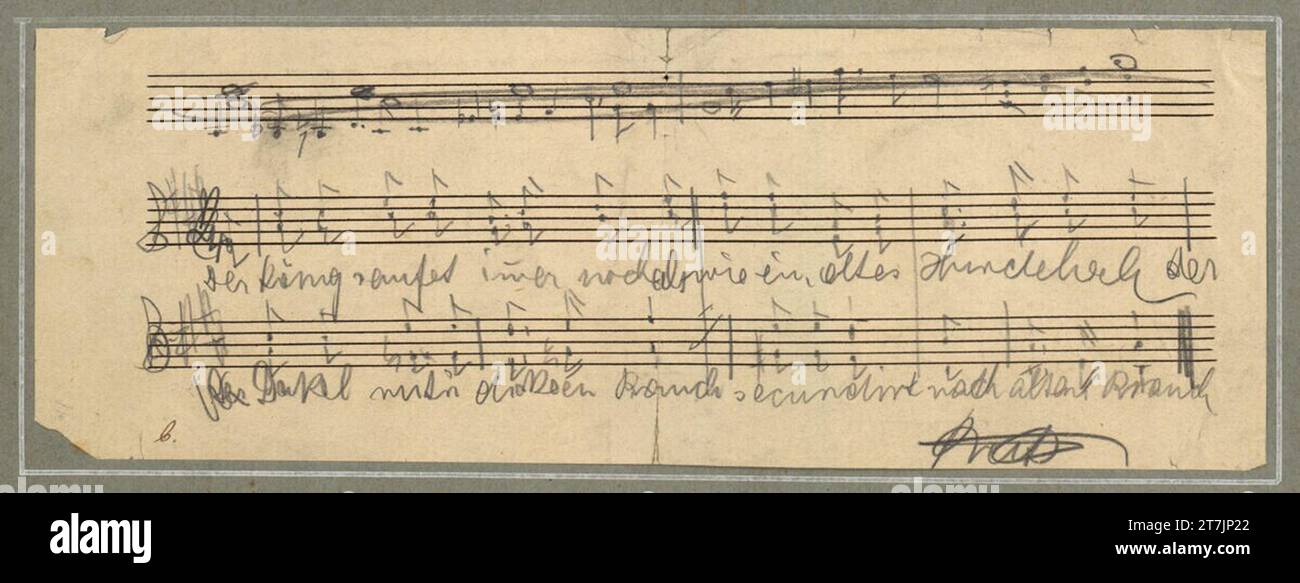 Der König saufet im̄er noch als wie ein altes Hundeloch der
Dakel mit'n dicken Bauch secundirt nach altem Brauch
6.
alamy
Image ID: 2T7JP22
www.alamy.com